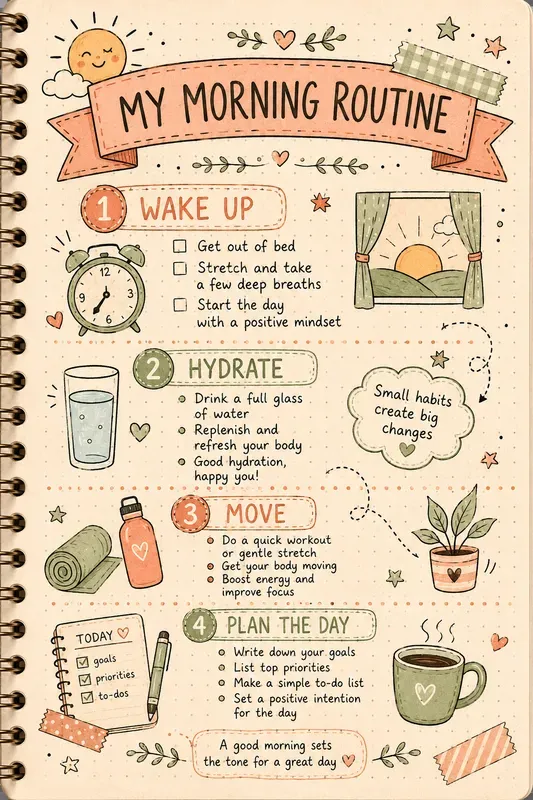 MY MORNING ROUTINE
1 WAKE UP
Get out of bed
Stretch and take
a few deep breaths
Start the day
with a positive mindset
12
3
6
9
2 HYDRATE
Drink a full glass
of water
Replenish and
refresh your body
Good hydration,
happy you!
Small habits
create big
changes
3 MOVE
Do a quick workout
or gentle stretch
Get your body moving
Boost energy and
improve focus
4 PLAN THE DAY
Write down your goals
List top priorities
Make a simple to-do list
Set a positive intention
for the day
TODAY
goals
priorities
to-dos
A good morning sets
the tone for a great day